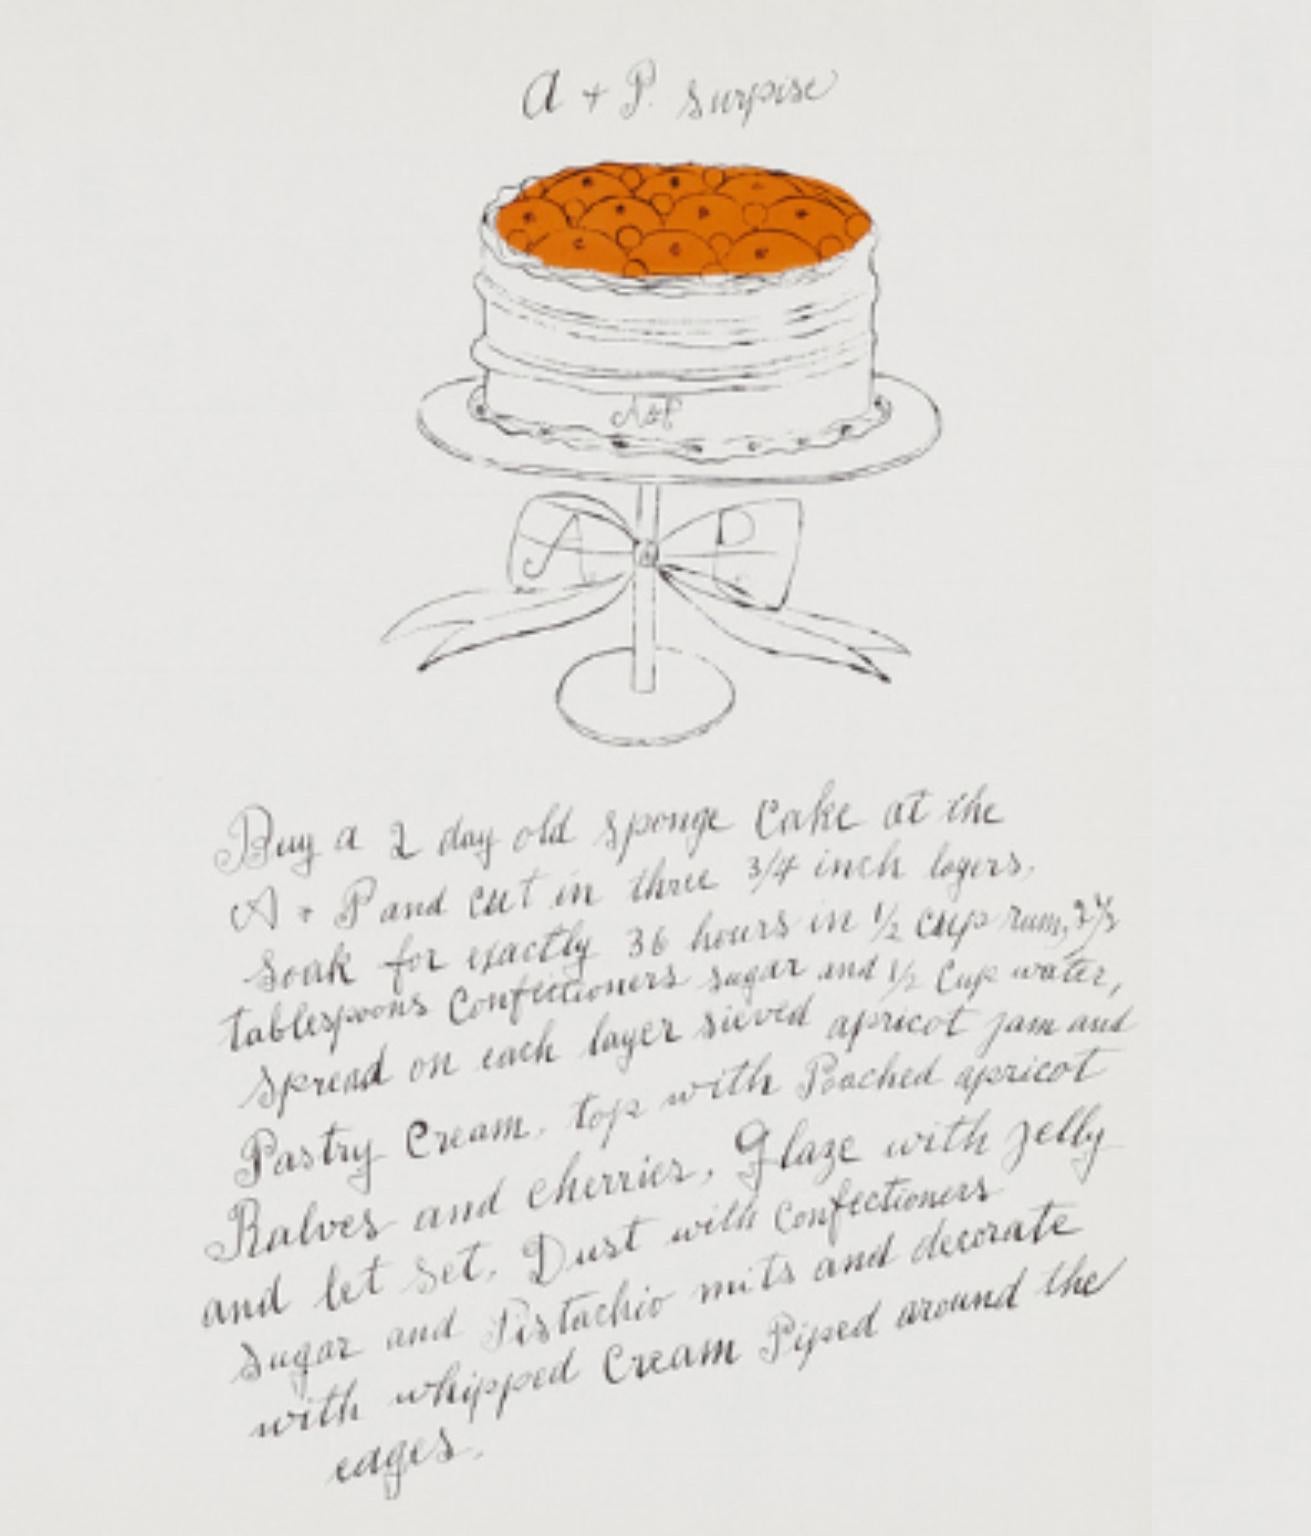 A + P. surpise
A&P
A P
Buy a 2 day old sponge Cake at the
A + P and cut in three 3/4 inch layers,
Soak for exactly 36 hours in 1/2 cup rum,
tablespoons Confectioners sugar and 1/2 Cup water,
spread on each layer sieved apricot jam and
Pastry Cream. top with Poached apricot
Halves and cherries, Glaze with jelly
and let set. Dust with confectioners
sugar and Pistachio nuts and decorate
with whipped Cream Piped around the
edges.